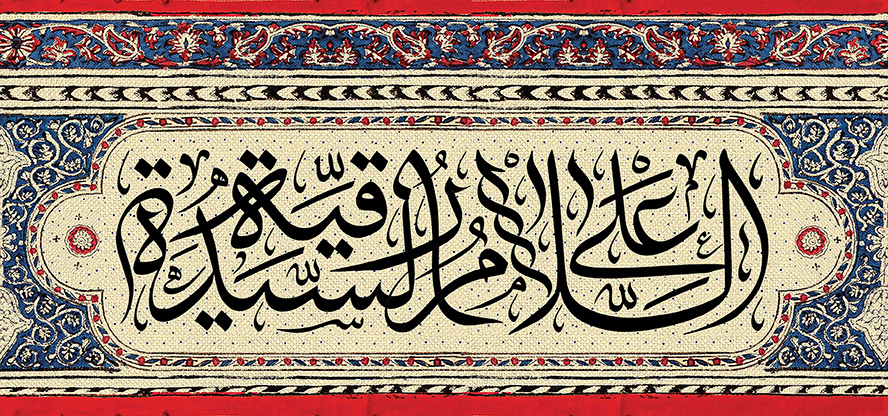 السَّلامُ عَلَى السَّيِّدَةُ رُقَيَّة